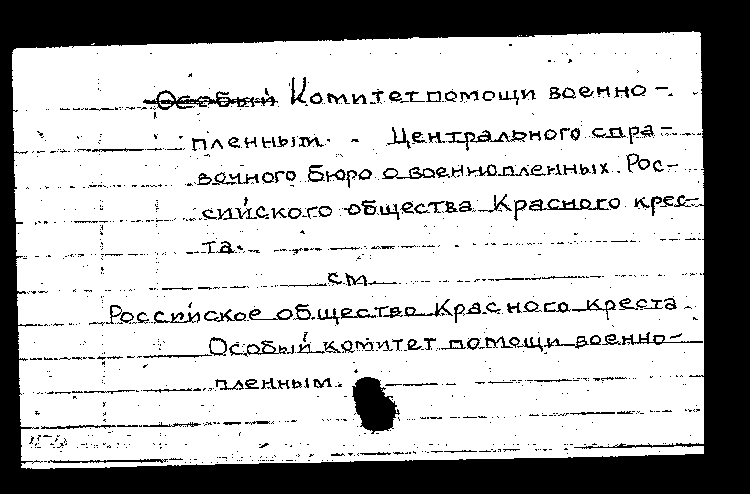 Особый Комитет помощи военно-
пленным. - Центрального спра-
вочного бюро о военнопленных. Рос-
сийского общества Красного крес-
та.
см.
Российское общество Красного Креста.
Особый комитет помощи военно-
пленным.